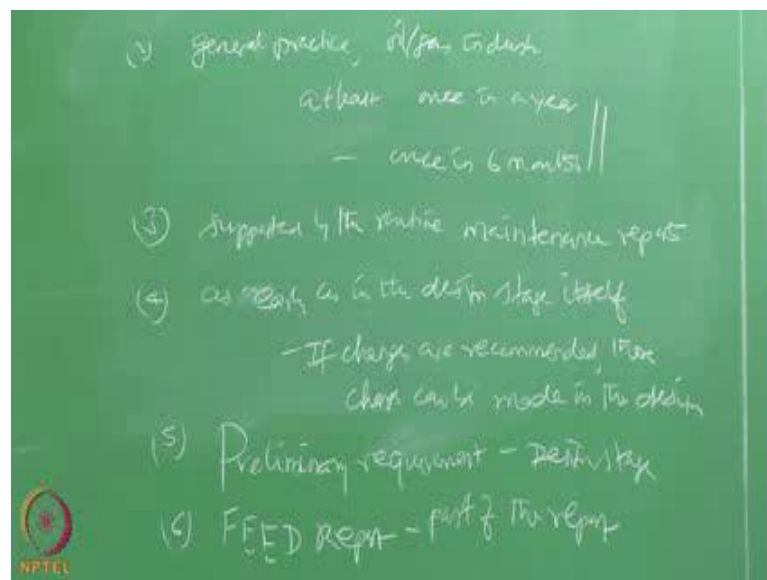 (2) general practice, oil/gas industr
atleast once in a year
- once in 6 months
(3) supported by the routine maintenance reports
(4) as early as in the design stage itself
- If changes are recommended, these
changes can be made in the design
(5) Preliminary requirement - Design stage
(6) FEED Report - part of the report
NPTEL